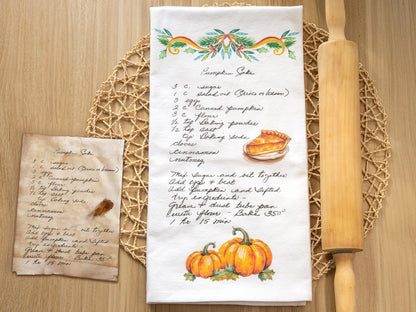 Pumpkin Cake
3 c. sugar
1 c salad oil (Crisco or Wesson)
3 eggs
2 c Canned pumpkin
3 c. flour
1/2 tsp Baking powder
1/2 tsp salt
tsp Baking soda
cloves
Cinnamon
nutmeg
Mix sugar and oil together
Add eggs & beat
Add pumpkin and sifted
dry ingredients -
Grease & dust tube pan
flour - Bake 350°
1 hr 15 min
Pumpkin Cake
3 c. sugar
1 c salad oil (Crisco or Wesson)
3 eggs
2 c Canned pumpkin
3 c. flour
1/2 tsp Baking powder
1/2 tsp salt
tsp Baking soda
cloves
Cinnamon
nutmeg
Mix sugar and oil together
Add eggs & beat
Add pumpkin and sifted
dry ingredients -
Grease & dust tube pan
flour - Bake 350°
1 hr 15 min